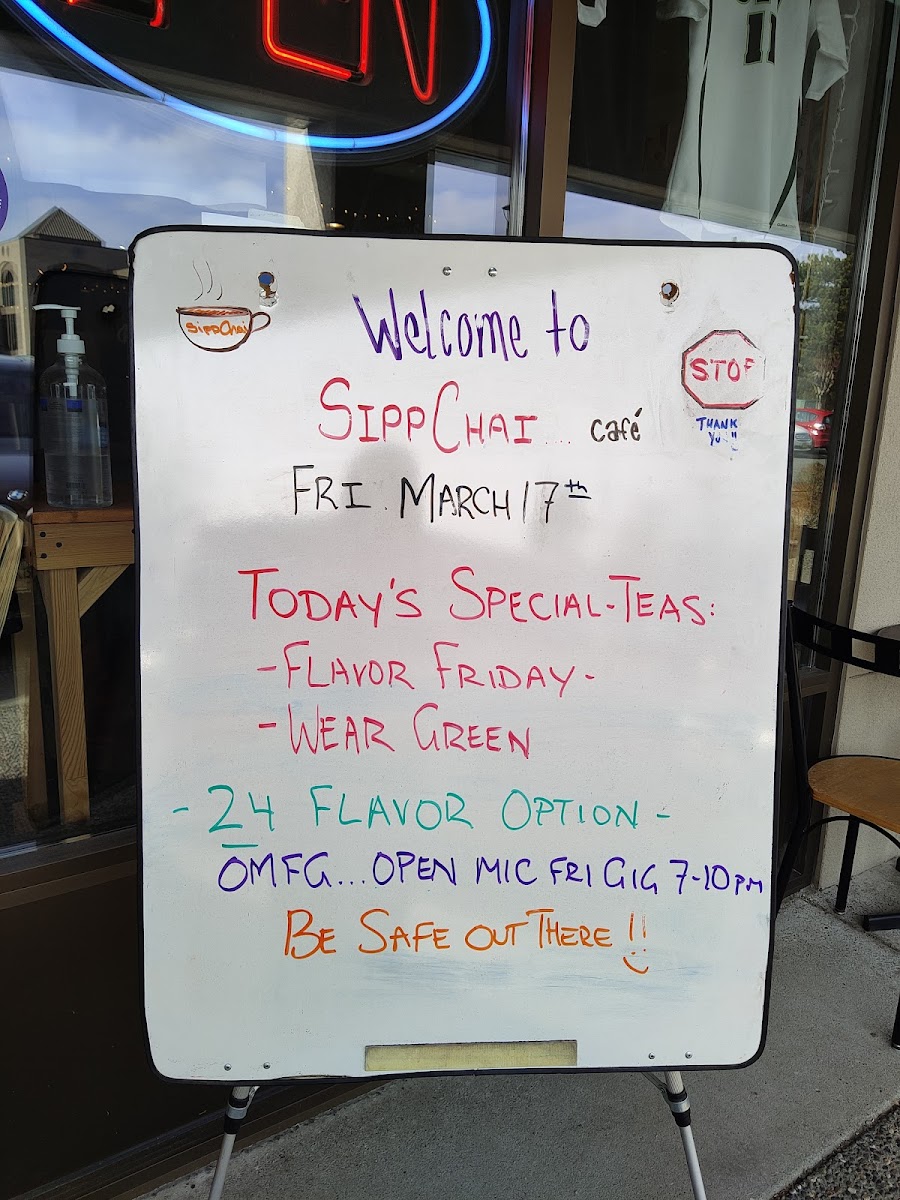 SippChai
Welcome to
SIPPCHAI.... café
STOP
THANK
YU !!
FRI. MARCH 17th
TODAY'S SPECIAL-TEAS:
-FLAVOR FRIDAY-
-WEAR GREEN
- 24 FLAVOR OPTION -
OMFG... OPEN MIC FRI GIG 7-10PM
BE SAFE OUT THERE !!